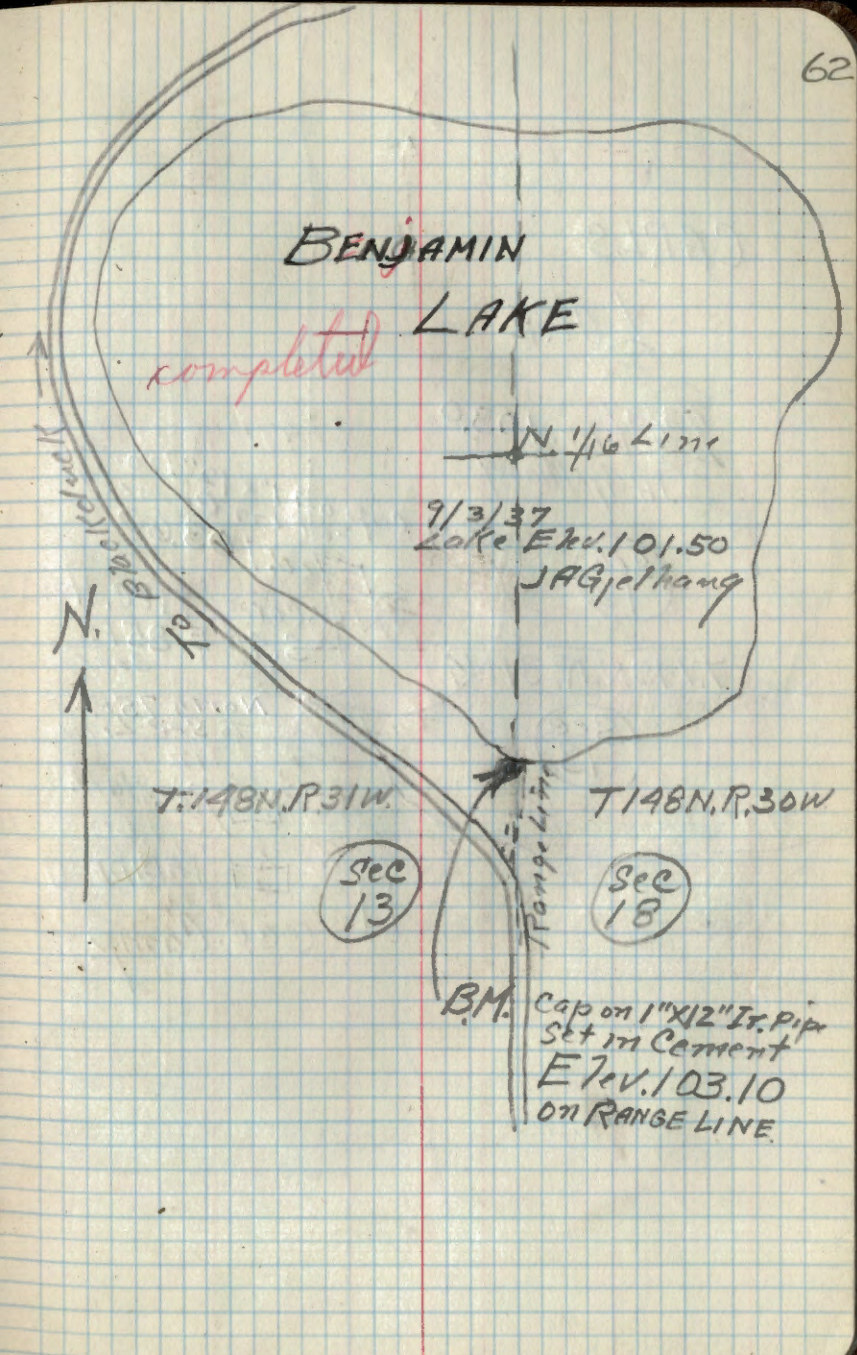 62
BENJAMIN
LAKE
completed
N. 1/16 Line
9/3/37
Lake Elev. 101.50
JAGjelhaug
To Blackduck
N.
T.148N.R.31W.
T148N.R.30W
Range Line
Sec
13
Sec
18
B.M.
Cap on 1"X12" Ir. Pipe
Set in Cement
Elev. 103.10
on RANGE LINE